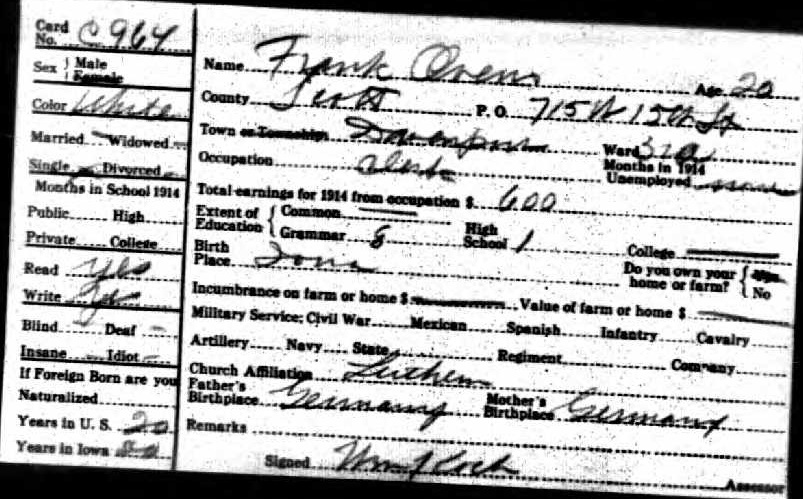 Card No. C 964
Sex } Male Female
Color White
Married Widowed
Single Divorced
Months in School 1914
Public High
Private College
Read yes
Write yes
Blind Deaf
Insane Idiot
If Foreign Born are you
Naturalized
Years in U. S. 20
Years in Iowa 20
Name Frank Owens Age 20
County Scott P. O. 715 W 15th St
Town or Township Davenport Ward 3rd
Occupation Clerk Months in 1914 Unemployed none
Total earnings for 1914 from occupation $ 600
Extent of Education { Common
Grammar 8 High School 1 College
Birth Place Iowa Do you own your home or farm? { Yes No
Incumbrance on farm or home $ Value of farm or home $
Military Service: Civil War Mexican Spanish Infantry Cavalry
Artillery Navy State Regiment Company
Church Affiliation Luthern
Father's Birthplace Germany Mother's Birthplace Germany
Remarks
Signed Wm Koch Assessor